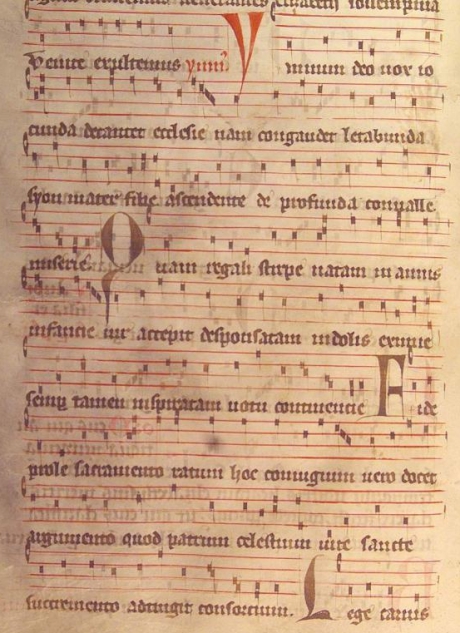 venerantes
Venite exultemus ymn V ninum deo vox io
cunda decantet ecclesie nam congaudet letabunda
syon mater filie ascendente de profunda conualle
miserie. Q uam regali stirpe natam in annis
infancie uir accepit desponsatam indolis eximie
semp tamen inspiratam uotu continencie F ide
prole sacramento ratum hoc coniugium uero docet
argumento quod patrum celestium uite sancte
succremento adtingit consorcium. L ege carnis